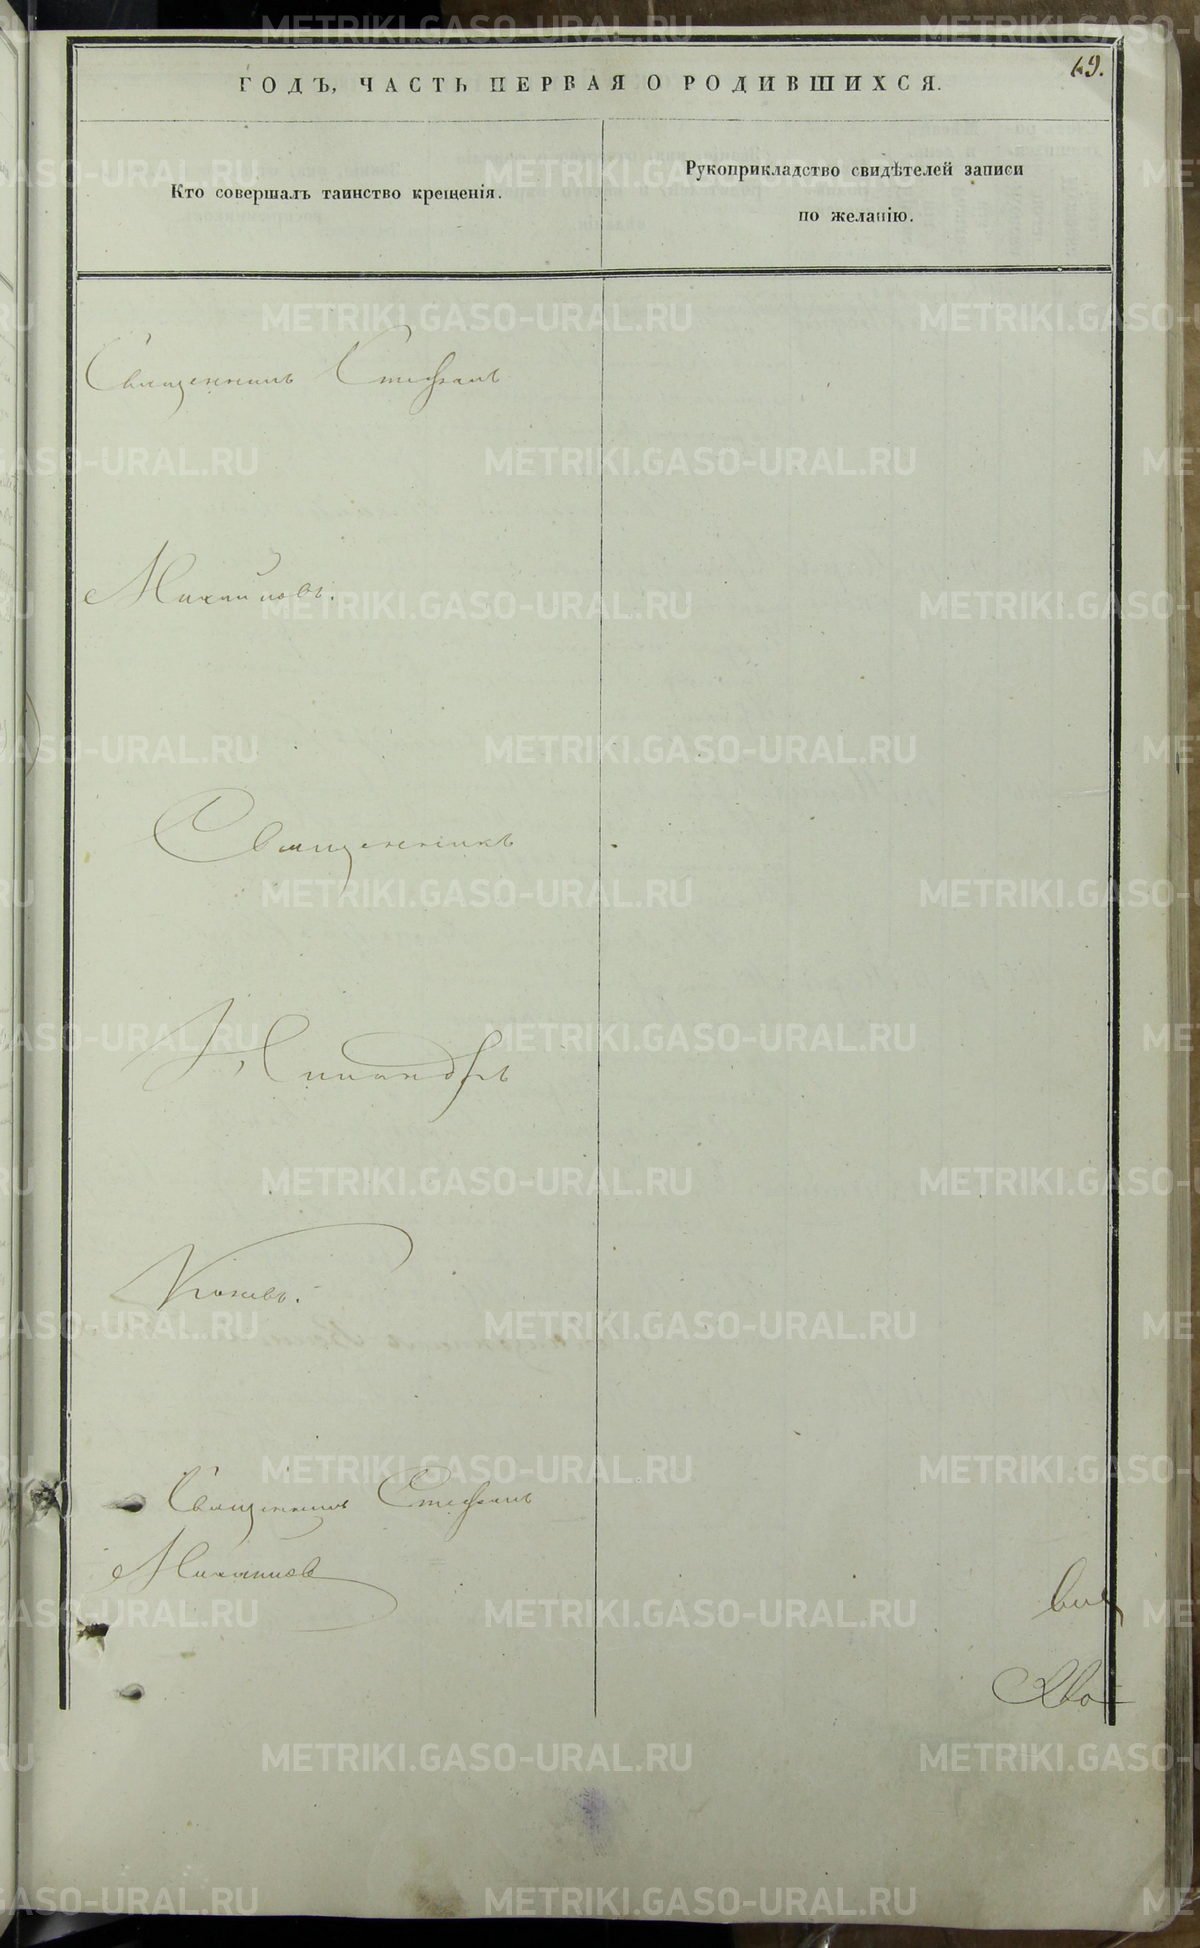 69.
ГОДЪ, ЧАСТЬ ПЕРВАЯ О РОДИВШИХСЯ.
Кто совершалъ таинство крещенія.
Рукоприкладство свидѣтелей записи
по желанію.
Священникъ Стефанъ
Михайловъ.
Священникъ
Никандръ
Священникъ Стефанъ
Михайловъ
METRIKI.GASO-URAL.RU